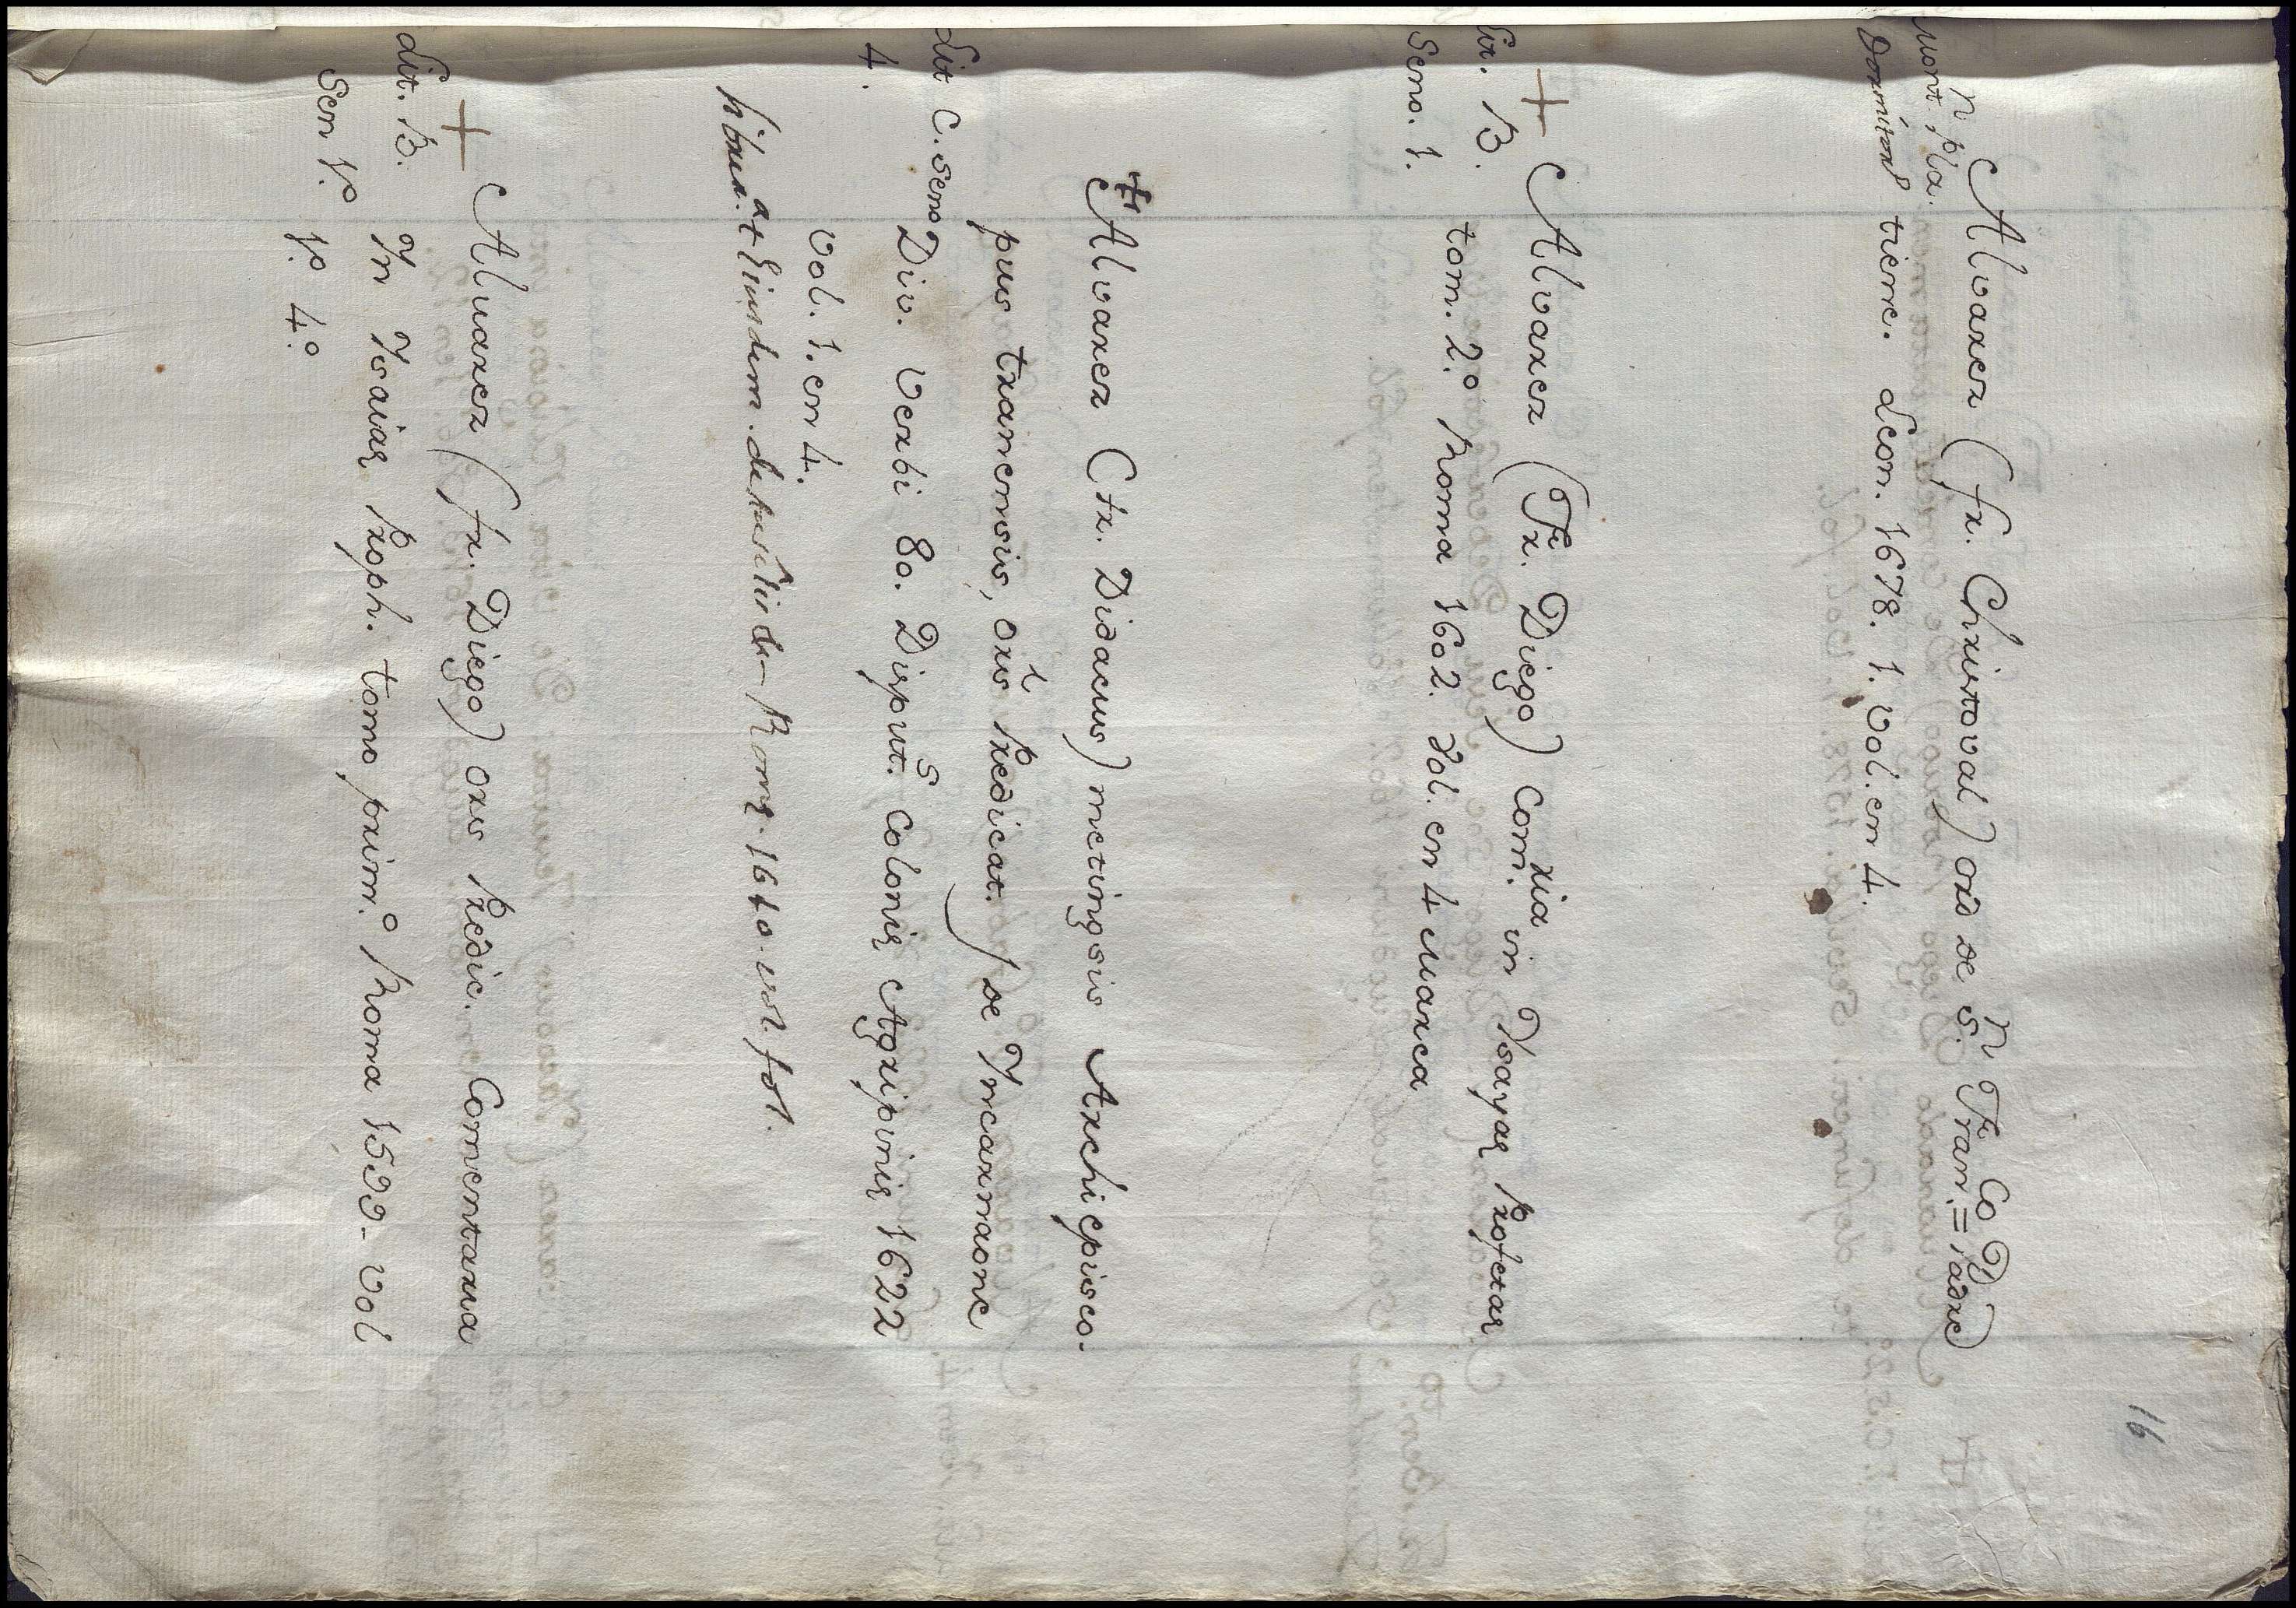 16
Alvarez (fr. Christoval) ord de S.n Fran.co = Padre
mont. pla.n
Dormitorio tiene. Leon. 1678. 1. vol. en 4.
+
Alvarez (Fr. Diego) Com.ria in Isayas Profetas
lit. B.
tom. 2.o Roma 1602. vol. en 4 marca
Seno. 1.
Alvarez (fr. Didacus) metingsis Archiepisco-
pus tranensis, ors Predicat.) de Incarnaone
Lit C. Seno Div. Verbi 80. Disput.s Colonis Agripinis 1622
4. vol. 1. en 4.
at Eiusdem de Roma. 1610. vol. fol.
+
Aluarez (fr. Diego) ors Predic. Comentaria
Lit. B. In Isaias Proph. tomo prim.o Roma 1599. vol
Sen 1.o 1.o 4.o